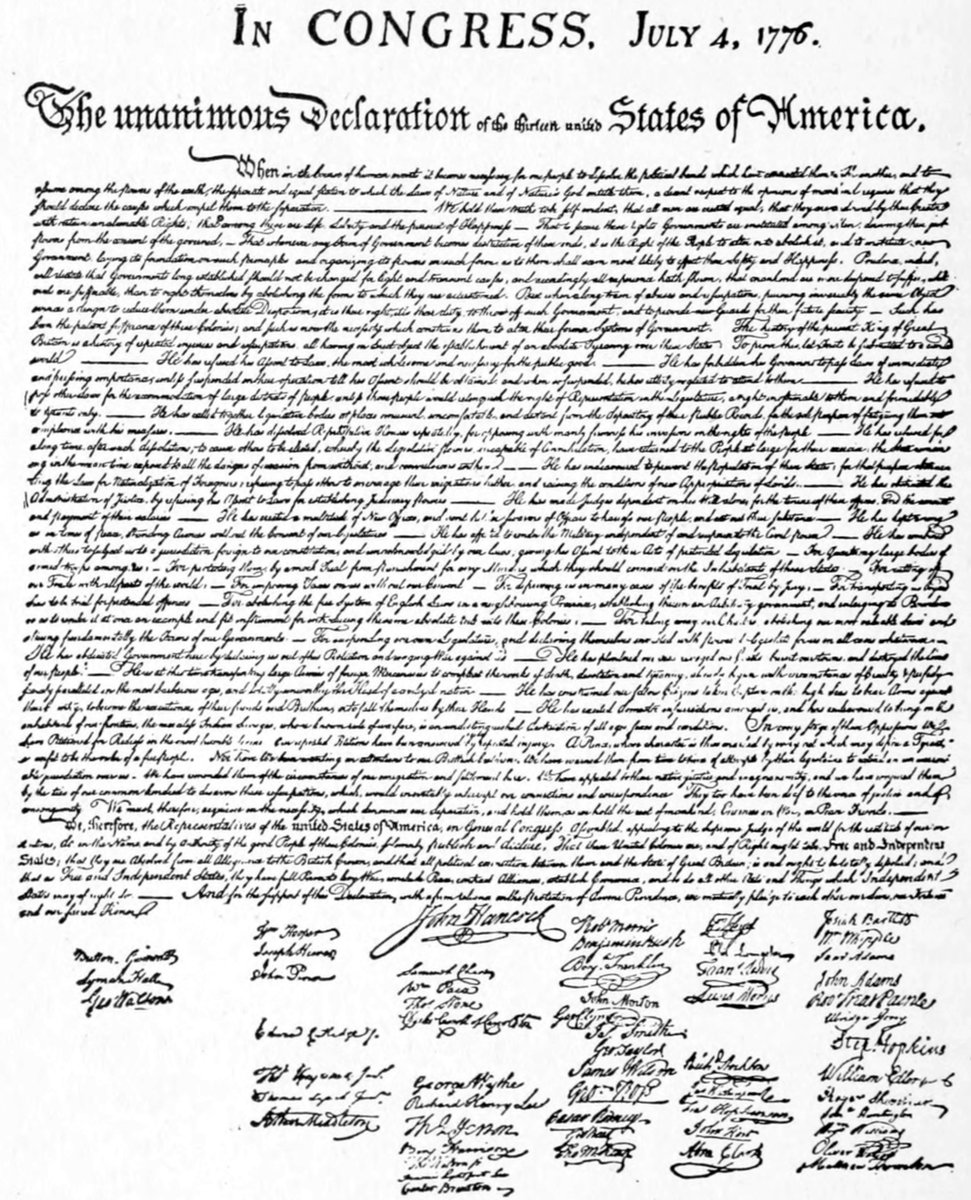 IN CONGRESS, JULY 4, 1776.
The unanimous Declaration of the thirteen united States of America.
When in the Course of human events it becomes necessary for one people to dissolve the political bands which have connected them with another, and to
assume among the powers of the earth, the separate and equal station to which the Laws of Nature and of Nature's God entitle them, a decent respect to the opinions of mankind requires that they
should declare the causes which impel them to the separation. — We hold these truths to be self-evident, that all men are created equal, that they are endowed by their Creator
with certain unalienable Rights, that among these are Life, Liberty and the pursuit of Happiness — That to secure these rights, Governments are instituted among Men, deriving their just
powers from the consent of the governed, — That whenever any Form of Government becomes destructive of these ends, it is the Right of the People to alter or to abolish it, and to institute new
Government, laying its foundation on such principles and organizing its powers in such form, as to them shall seem most likely to effect their Safety and Happiness. Prudence, indeed,
will dictate that Governments long established should not be changed for light and transient causes; and accordingly all experience hath shewn, that mankind are more disposed to suffer, while
evils are sufferable, than to right themselves by abolishing the forms to which they are accustomed. But when a long train of abuses and usurpations, pursuing invariably the same Object
evinces a design to reduce them under absolute Despotism, it is their right, it is their duty, to throw off such Government, and to provide new Guards for their future security. — Such has
been the patient sufferance of these Colonies; and such is now the necessity which constrains them to alter their former Systems of Government. The history of the present King of Great
Britain is a history of repeated injuries and usurpations, all having in direct object the establishment of an absolute Tyranny over these States. To prove this, let Facts be submitted to a candid
world. — He has refused his Assent to Laws, the most wholesome and necessary for the public good. — He has forbidden his Governors to pass Laws of immediate
and pressing importance, unless suspended in their operation till his Assent should be obtained; and when so suspended, he has utterly neglected to attend to them. — He has refused to
pass other Laws for the accommodation of large districts of people, unless those people would relinquish the right of Representation in the Legislature, a right inestimable to them and formidable
to tyrants only. — He has called together legislative bodies at places unusual, uncomfortable, and distant from the depository of their Public Records, for the sole purpose of fatiguing them into
compliance with his measures. — He has dissolved Representative Houses repeatedly, for opposing with manly firmness his invasions on the rights of the people. — He has refused for
a long time, after such dissolutions, to cause others to be elected; whereby the Legislative powers, incapable of Annihilation, have returned to the People at large for their exercise; the State remain-
ing in the mean time exposed to all the dangers of invasion from without, and convulsions within. — He has endeavoured to prevent the population of these States; for that purpose obstruc-
ting the Laws for Naturalization of Foreigners; refusing to pass others to encourage their migrations hither, and raising the conditions of new Appropriations of Lands. — He has obstructed the
Administration of Justice, by refusing his Assent to Laws for establishing Judiciary powers. — He has made Judges dependent on his Will alone, for the tenure of their offices, and the amount
and payment of their salaries. — He has erected a multitude of New Offices, and sent hither swarms of Officers to harrass our people, and eat out their substance. — He has kept among
us, in times of peace, Standing Armies without the Consent of our legislatures. — He has affected to render the Military independent of and superior to the Civil power. — He has combined
with others to subject us to a jurisdiction foreign to our constitution, and unacknowledged by our laws; giving his Assent to their Acts of pretended Legislation: — For Quartering large bodies of
armed troops among us: — For protecting them, by a mock Trial, from punishment for any Murders which they should commit on the Inhabitants of these States: — For cutting off
our Trade with all parts of the world: — For imposing Taxes on us without our Consent: — For depriving us in many cases, of the benefits of Trial by Jury: — For transporting us beyond
Seas to be tried for pretended offences — For abolishing the free System of English Laws in a neighbouring Province, establishing therein an Arbitrary government, and enlarging its Boundaries
so as to render it at once an example and fit instrument for introducing the same absolute rule into these Colonies: — For taking away our Charters, abolishing our most valuable Laws, and
altering fundamentally the Forms of our Governments: — For suspending our own Legislatures, and declaring themselves invested with power to legislate for us in all cases whatsoever. —
He has abdicated Government here, by declaring us out of his Protection and waging War against us. — He has plundered our seas, ravaged our Coasts, burnt our towns, and destroyed the lives
of our people. — He is at this time transporting large Armies of foreign Mercenaries to compleat the works of death, desolation and tyranny, already begun with circumstances of Cruelty & perfidy
scarcely paralleled in the most barbarous ages, and totally unworthy the Head of a civilized nation. — He has constrained our fellow Citizens taken Captive on the high Seas to bear Arms against
their Country, to become the executioners of their friends and Brethren, or to fall themselves by their Hands. — He has excited domestic insurrections amongst us, and has endeavoured to bring on the
inhabitants of our frontiers, the merciless Indian Savages, whose known rule of warfare, is an undistinguished destruction of all ages, sexes and conditions. In every stage of these Oppressions We
have Petitioned for Redress in the most humble terms: Our repeated Petitions have been answered by repeated injury. A Prince, whose character is thus marked by every act which may define a Tyrant,
is unfit to be the ruler of a free people. Nor have We been wanting in attentions to our British brethren. We have warned them from time to time of attempts by their legislature to extend an unwarrant-
able jurisdiction over us. We have reminded them of the circumstances of our emigration and settlement here. We have appealed to their native justice and magnanimity, and we have conjured them
by the ties of our common kindred to disavow these usurpations, which, would inevitably interrupt our connections and correspondence. They too have been deaf to the voice of justice and of
consanguinity. We must, therefore, acquiesce in the necessity, which denounces our Separation, and hold them, as we hold the rest of mankind, Enemies in War, in Peace Friends. —
We, therefore, the Representatives of the united States of America, in General Congress, Assembled, appealing to the Supreme Judge of the world for the rectitude of our in-
tentions, do, in the Name, and by Authority of the good People of these Colonies, solemnly publish and declare, That these United Colonies are, and of Right ought to be Free and Independent
States; that they are Absolved from all Allegiance to the British Crown, and that all political connection between them and the State of Great Britain, is and ought to be totally dissolved; and
that as Free and Independent States, they have full Power to levy War, conclude Peace, contract Alliances, establish Commerce, and to do all other Acts and Things which Independent
States may of right do. — And for the support of this Declaration, with a firm reliance on the protection of divine Providence, we mutually pledge to each other our Lives, our Fortunes
and our sacred Honor.
John Hancock
Button Gwinnett
Lyman Hall
Geo Walton
Wm Hooper
Joseph Hewes
John Penn
Edward Rutledge
Thos Heyward Junr
Thomas Lynch Junr
Arthur Middleton
Samuel Chase
Wm Paca
Thos Stone
Charles Carroll of Carrollton
George Wythe
Richard Henry Lee
Th Jefferson
Benj Harrison
Carter Braxton
Robt Morris
Benjamin Rush
Benj Franklin
John Morton
Geo Clymer
Jas Smith
Geo Taylor
James Wilson
Geo Ross
Caesar Rodney
Geo Read
Tho M:Kean
Lewis Morris
Richd Stockton
John Hart
Abra Clark
Josiah Bartlett
Wm Whipple
Saml Adams
John Adams
Robt Treat Paine
Elbridge Gerry
Step Hopkins
William Ellery
Roger Sherman
Saml Huntington
Wm Williams
Oliver Wolcott
Matthew Thornton